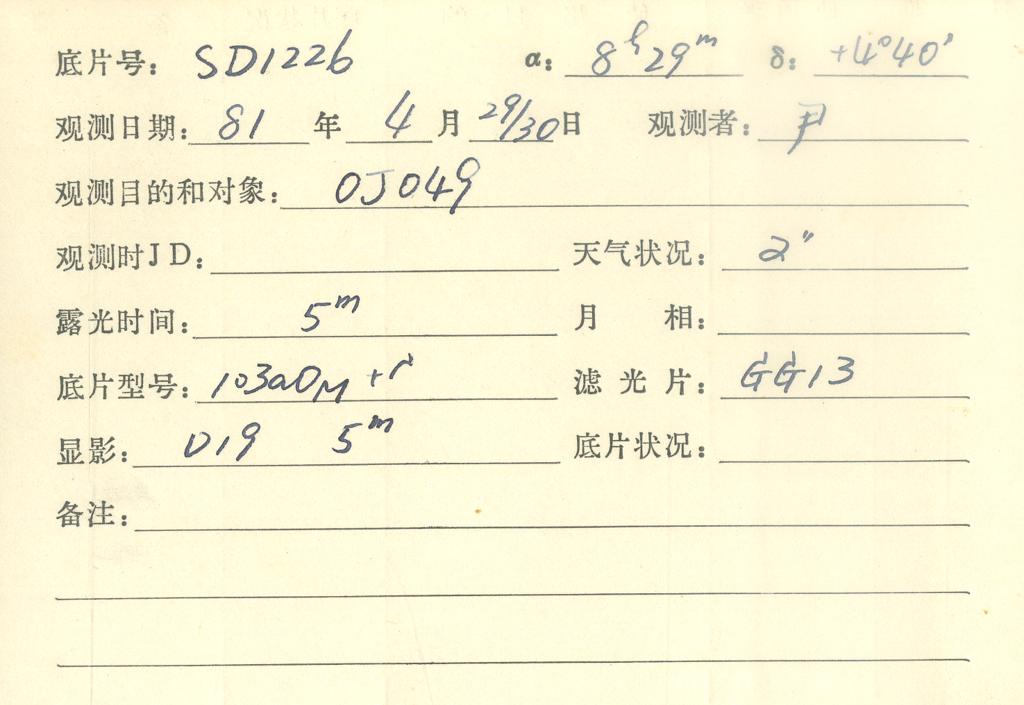 底片号： SD1226 α： 8ʰ29ᵐ δ： +4°40′
观测日期： 81 年 4 月 29/30日 观测者： 尹
观测目的和对象： OJ049
观测时JD： 天气状况： 2″
露光时间： 5ᵐ 月 相：
底片型号： 103aO 滤光片： GG13
显影： D19 5ᵐ 底片状况：
备注：